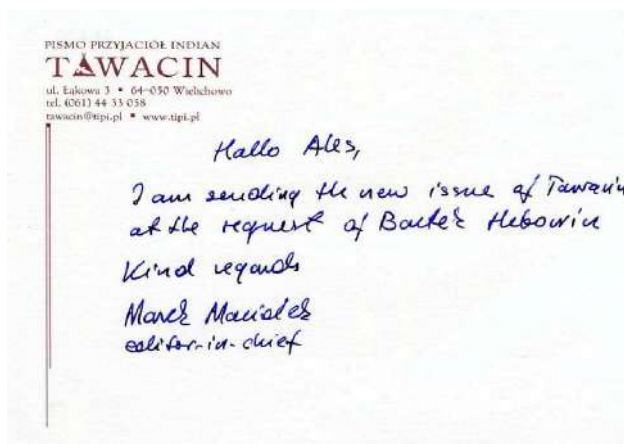 PISMO PRZYJACIÓŁ INDIAN
TAWACIN
ul. Łąkowa 3 ▪ 64-050 Wielichowo
tel. (061) 44 33 058
tawacin@tipi.pl ▪ www.tipi.pl
Hallo Ales,
I am sending the new issue of Tawacin
at the request of
Kind regards
Marek
editor-in-chief